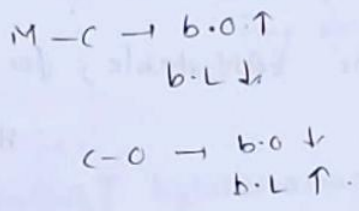 M – C → b.O ↑
b.L ↓
C – O → b.o ↓
b.L ↑.